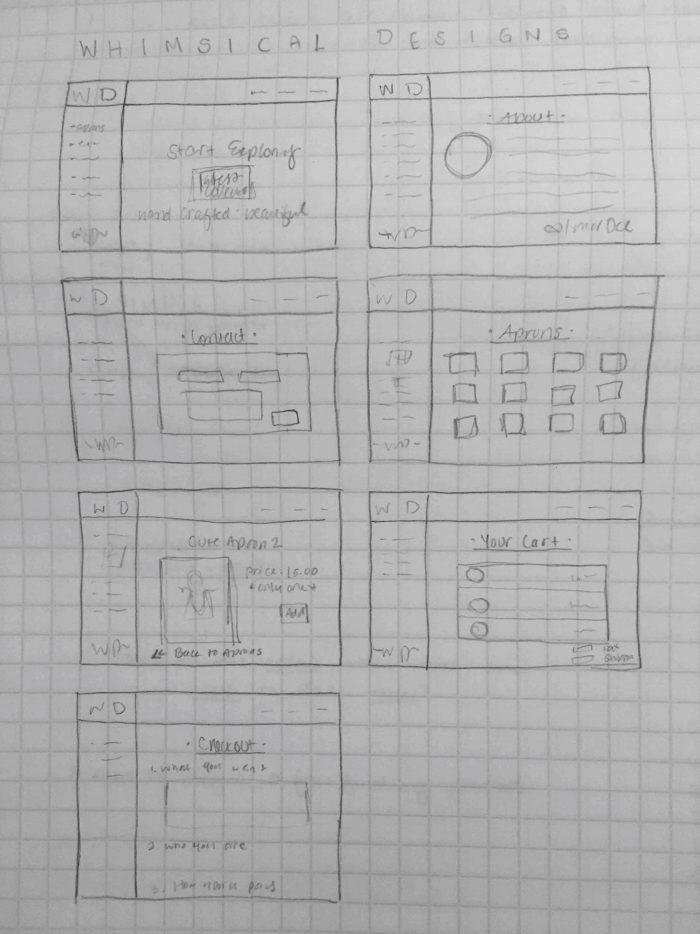 WHIMSICAL DESIGNS
WD
aprons
Start Exploring
hand crafted · beautiful
WD
WD
· About ·
WD
WD
· Contact ·
WD
WD
· Aprons ·
WD
WD
Cute Apron 2
price: 15.00
* only one *
Add
← Back to Aprons
WD
WD
· Your Cart ·
tax
WD
WD
· Checkout ·
1. what you
2. who you are
3. How pay